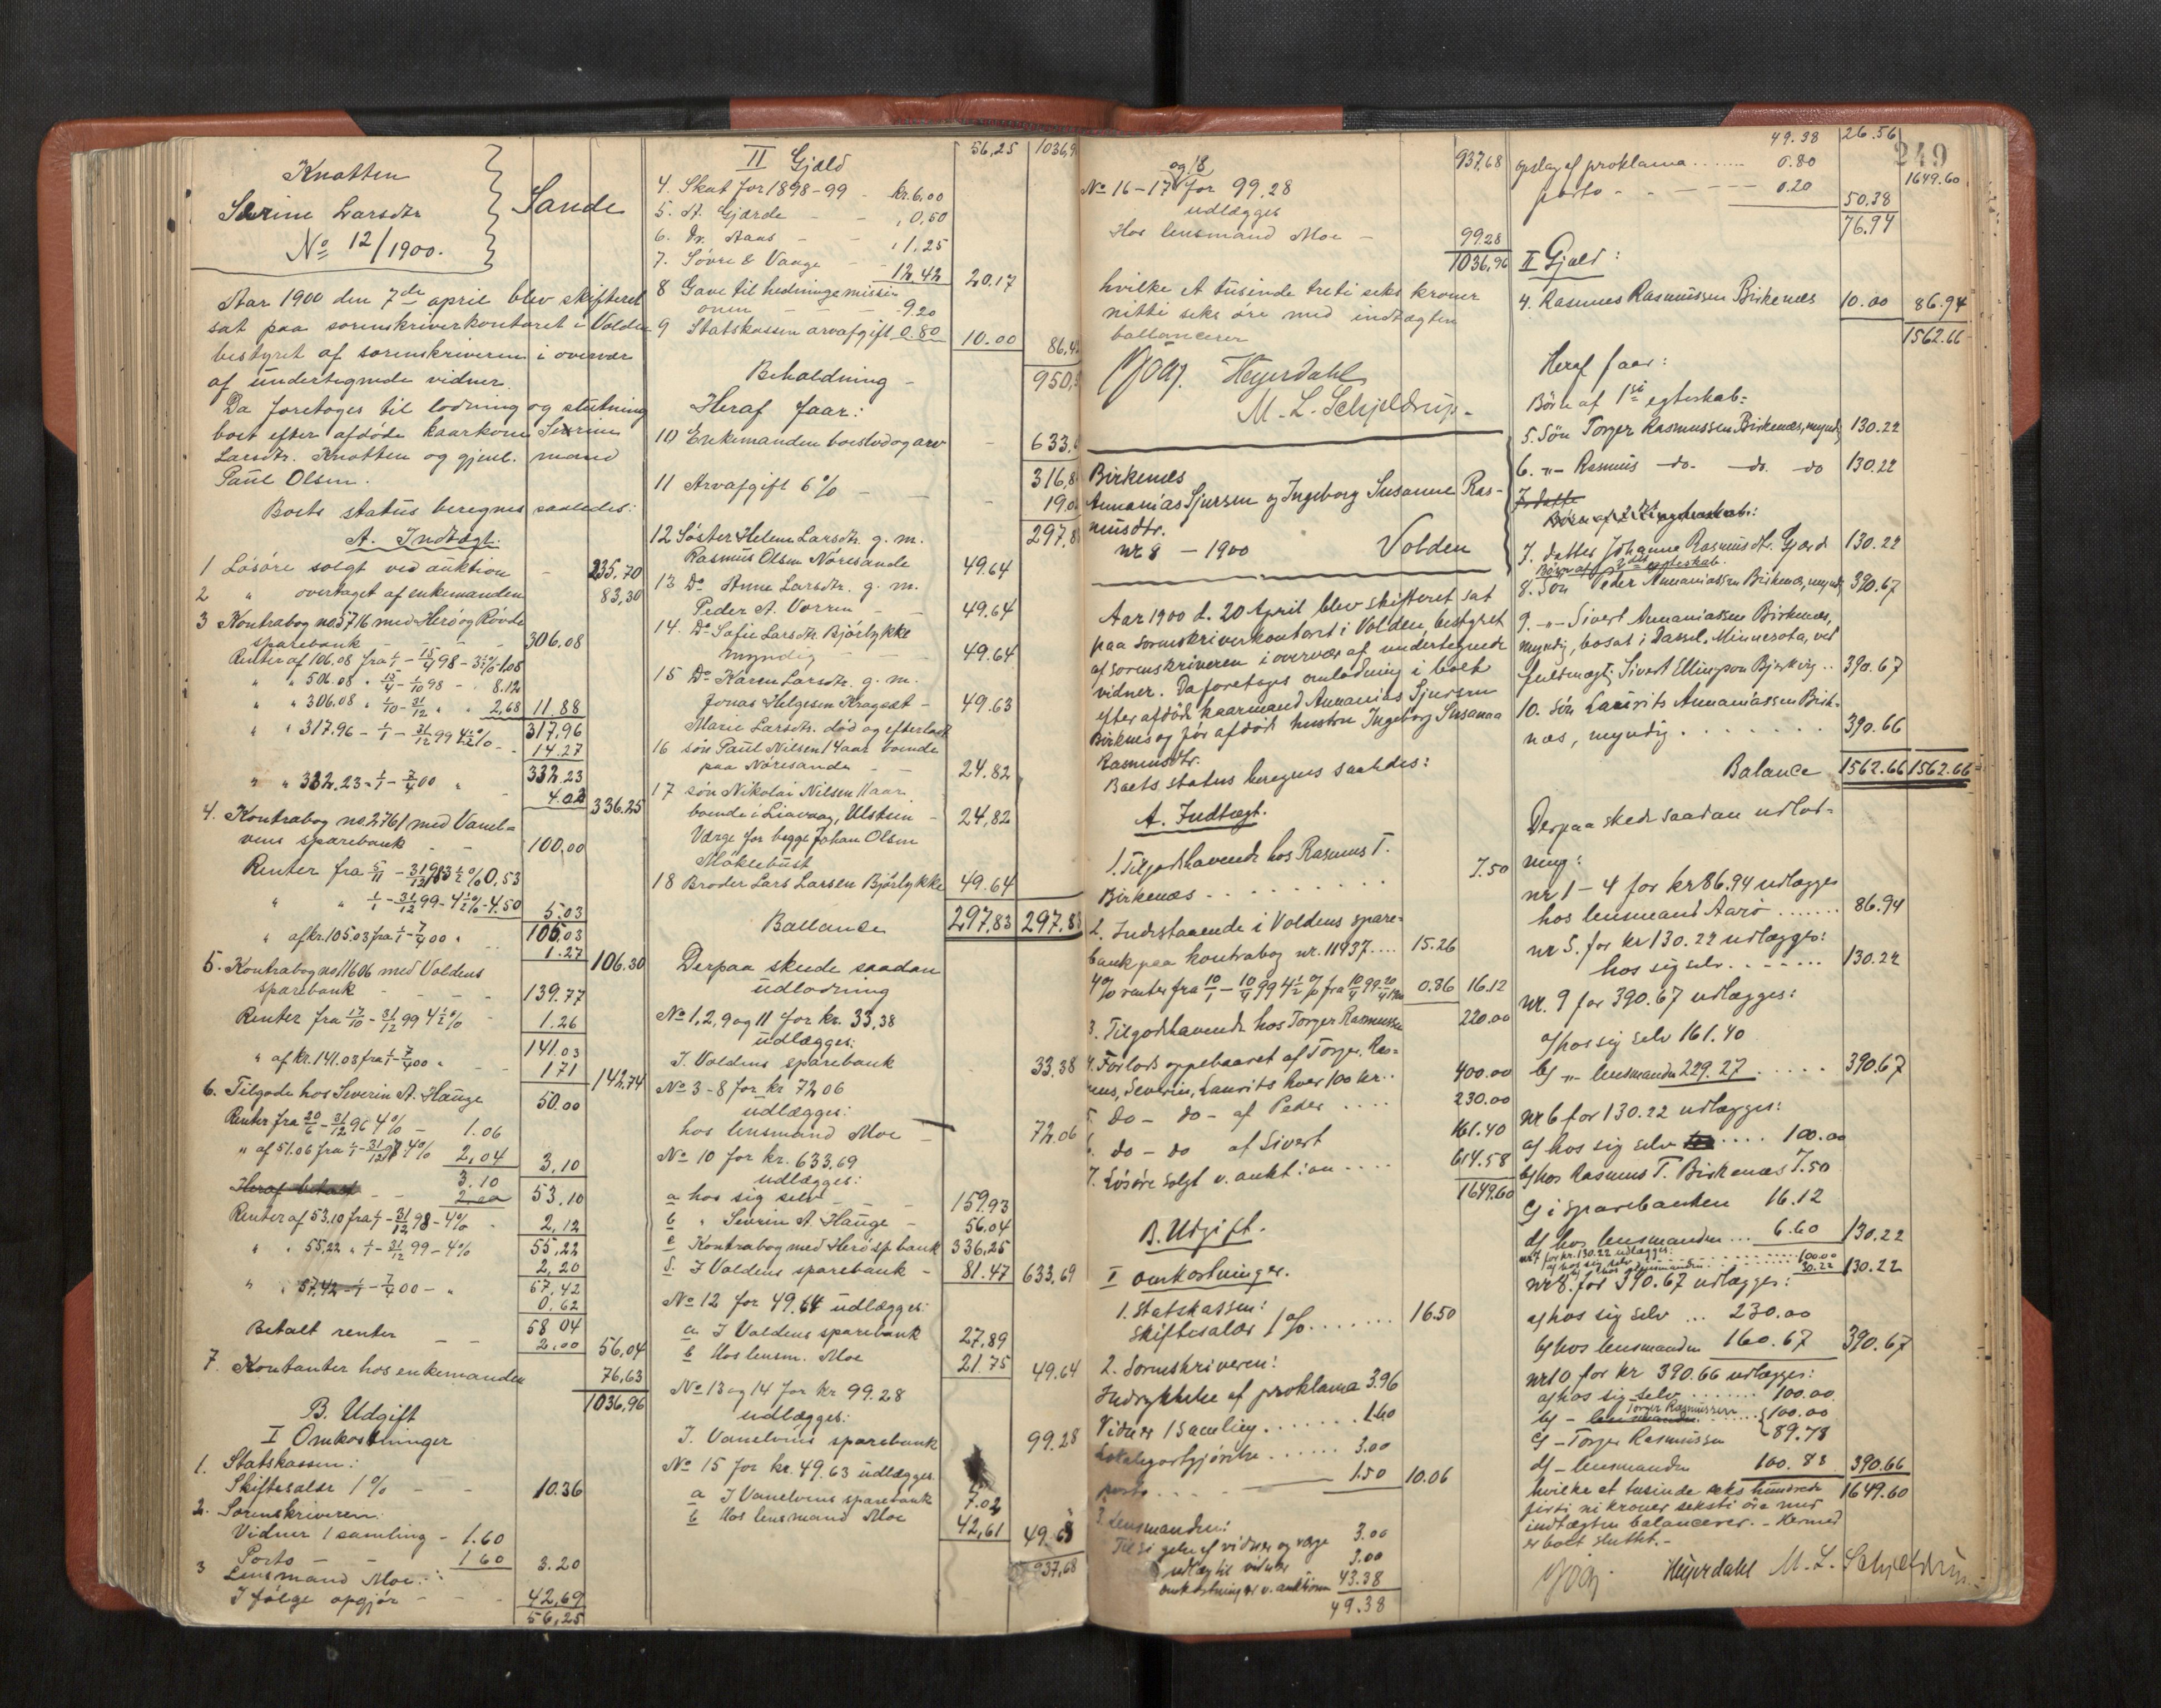 Knotten
Sevrine Larsdtr.
No 12/1900.
Sande
Aar 1900 den 7de april blev skifteret
sat paa sorenskriverkontoret i Volden
bestyret af sorenskriveren i overvær
af undertegnede vidner.
Da foretoges til lodning og slutning
boet efter afdöde kaarkone Sevrine
Larsdtr. Knotten og gjenl. mand
Paul Olsen.
Boets status beregnes saaledes:
A. Indtægt.
1 Lösöre solgt ved auktion - 235.70
2 " overtaget af enkemanden 83,30
3 Kontrabog no 3716 med Herö og Rövde
sparebank - - - 306.08
Renter af 106.08 fra 1/1 - 15/4 98 - 3 1/2 % 1.08
" " 506.08 " 15/4 - 1/10 98 - " 8.12
" " 306.08 " 1/10 - 31/12 " " 2,68 11.88
317.96
" " 317.96 - 1/1 - 31/12 99 4 1/2 % - - 14.27
332.23
" " 332.23 - 1/1 - 7/4 00 " - 4.02 336.25
4. Kontrabog no. 2761 med Vanel-
vens sparebank - - 100,00
Renter fra 5/11 - 31/12 98 3 1/2 % 0,53
" " 1/1 - 31/12 99 - 4 1/2 % - 4.50 5.03
105.03
" af kr. 105.03 fra 1/1 - 7/4 00 " - 1.27 106.30
5. Kontrabog no 11606 med Voldens
sparebank - - - 139.77
Renter fra 17/10 - 31/12 99 4 1/2 % - 1.26
141.03
" af kr. 141.03 fra 1/1 - 7/4 00 " - 1 71 142.74
6. Tilgode hos Severin A. Hauge 50.00
Renter fra 20/6 - 31/12 96 4 % - 1.06
" af 51.06 fra 1/1 - 31/12 97 4 % 2,04 3,10
3.10
Heraf betalt - - 2.00 53.10
Renter af 53.10 fra 1/1 - 31/12 98 - 4 % - 2,12
55,22
" " 55,22 " 1/1 - 31/12 99 - 4 % 2,20
57,42
" " 57,42 - 1/1 - 7/4 00 - " 0,62
58 04
Betalt renter - - 2.00 56,04
7. Kontanter hos enkemanden 76,63
1036,96
B. Udgift
I Omkostninger
1. Statskassen:
Skiftesalær 1 % - - 10.36
2. Sorenskriveren:
Vidner 1 samling - 1.60
Porto - - 1 60 3.20
3 Lensmand Moe:
I fölge opgjör - - - 42,69
56,25
II Gjæld 56,25
4. Skat for 1898-99 - kr. 6,00
5. A. Gjærde - - " 0,50
6. Dr. Aaas - - " 1,25
7. Sövre & Vange - 12,42 20.17
8 Gave til hedningemissi-
onen - - - 9.20
9 Statskassen arvafgift 0.80 10.00
Beholdning -
Heraf faar:
10 Enkemanden boeslod og arv -
11 Arvafgift 6 % - - -
12 Söster Helene Larsdtr. g. m.
Rasmus Olsen Nöresande 49.64
13 Do Anne Larsdtr. g. m.
Peder A. Vorren - - 49.64
14. Do Sofie Larsdtr. Bjørlykke
myndig - - - 49.64
15 Do Karen Larsdtr. g. m.
Jonas Helgesen Kragset - 49.63
Marie Larsdtr. död og efterladt
16 sön Paul Nilsen 14 aar boende
paa Nöresande - - 24.82
17 sön Nikolai Nilsen 11 aar
boende i Liavaag, Ulstein - 24,82
Værge for begge Johan Olsen
Möklebust
18 Broder Lars Larsen Bjørlykke 49.64
Ballance 297,83 297,83
Derpaa skede saadan
udlodning
No 1, 2, 9 og 11 for kr. 33,38
udlægges:
I. Voldens sparebank 33.38
No 3-8 for kr 72,06
udlægges:
hos lensmand Moe - 72.06
No 10 for kr. 633,69
udlægges:
a hos sig selv - - 159.93
b " Sevrin A. Hauge - 56.04
c Kontrabog med Herö sp bank 336,25
d. I Voldens sparebank - 81.47 633,69
No 12 for 49.64 udlægges:
a I Voldens sparebank 27,89
b Hos lensm. Moe 21.75 49.64
No 13 og 14 for kr 99.28
udlægges:
I. Vanelvens sparebank 99.28
No 15 for kr. 49.63 udlægges
a I Vanelvens sparebank 7.02
b Hos lensmand Moe 42,61 49.63
937,68
937,68
No 16-17 og 18 for 99.28
udlægges
Hos lensmand Moe - 99.28
1036,96
hvilke et tusinde treti seks kroner
nitti seks öre med indtægten
ballancerer
Heyerdahl
M. L. Schjeldrup.
Birkenæs
Annanias Sjursen og Ingeborg Susanne Ras-
musdtr.
nr 8 - 1900 Volden
Aar 1900 d. 20 April blev skifteret sat
paa sorenskriverkontoret i Volden bestyret
af sorenskriveren i overvær af undertegnede
vidner. Da foretoges omlodning i boet
efter afdöde kaarmand Annanias Sjursen
Birkenes og för afdöde hustru Ingeborg Susanna
Rasmusdtr.
Boets status beregnes saaledes:
A. Indtægt.
1. Tilgodehavende hos Rasmus T.
Birkenæs 7.50
2. Indestaaende i Voldens spare-
bank paa kontrabog nr. 11937 15.26
4 % renter fra 10/1 - 10/4 99 4 1/2 % fra 10/4 99 20/4 1900 0.86 16.12
3. Tilgodehavende hos Torger Rasmussen 220.00
4. Forlods oppebaaret af Torger, Ras-
mus, Severin, Laurits hver 100 kr. 400.00
5. do - do - af Peder 230.00
6. do - do af Sivert 161.40
7. Lösöre solgt v. auktion 614.58
1649.60
B. Udgift.
I omkostninger.
1. Statskassen:
Skiftesalær 1 % 16.50
2. Sorenskriveren:
Indrykkelse af proklama 3.96
Vidner 1 Samling 1.60
Lokalegodtgjörelse 3.00
porto 1.50 10.06
3. Lensmanden:
Tilsigelse af vidner og værge 3.00
udlæg til vidner 3.00
omkostninger v. auktionen 43.38
49.38
49.38 26.56 249
1649.60
opslag af proklama 0.80
porto 0.20 50.38
76.94
II Gjæld:
4. Rasmus Rasmussen Birkenæs 10.00 86.94
1562.66
Heraf faar:
Börn af 1ste egteskab:
5. Sön Torger Rasmussen Birkenæs, myndig 130.22
6. -"- Rasmus -do- -do- do 130.22
7. datter Johanna Rasmusdtr. Gjerde 130.22
Börn af 2det egteskab.
8. Sön Peder Annaniassen Birkenæs, myndig 390.67
9. -"- Sivert Annaniassen Birkenæs,
myndig, bosat i Dassel, Minnesota, ved
fuldmægtig Sivert Ellingson Bjerkvig 390.67
10. Sön Laurits Annaniassen Birke-
næs, myndig 390.66
Balance 1562.66 1562.66
Derpaa skede saadan udlod-
ning:
nr 1 - 4 for kr 86.94 udlægges
hos lensmand Aarö 86.94
nr 5. for kr 130.22 udlægges:
hos sig selv 130.22
nr. 9 for 390.67 udlægges:
a/ hos sig selv 161.40
b/ -"- lensmanden 229.27 390.67
nr 6 for 130.22 udlægges:
a/ hos sig selv 100.00
b/ hos Rasmus T. Birkenæs 7.50
c/ i sparebanken 16.12
d/ hos lensmanden 6.60 130.22
nr 7 for kr. 130.22 udlægges:
a/ hos sig selv 100.00
b/ hos lensmanden 30.22 130.22
nr 8. for 390.67 udlægges:
a/ hos sig selv 230.00
b/ hos lensmanden 160.67 390.67
nr 10 for kr 390.66 udlægges:
a/ hos sig selv 100.00
b/ - Torger Rasmussen 100.00
c/ - Torger Rasmussen 89.78
d/ - lensmanden 100.88 390.66
hvilke et tusinde seks hundrede 1649.60
firti ni kroner seksti öre med
indtægten balancerer. - Hermed
er boet sluttet. -
Heyerdahl M. L. Schjeldrup